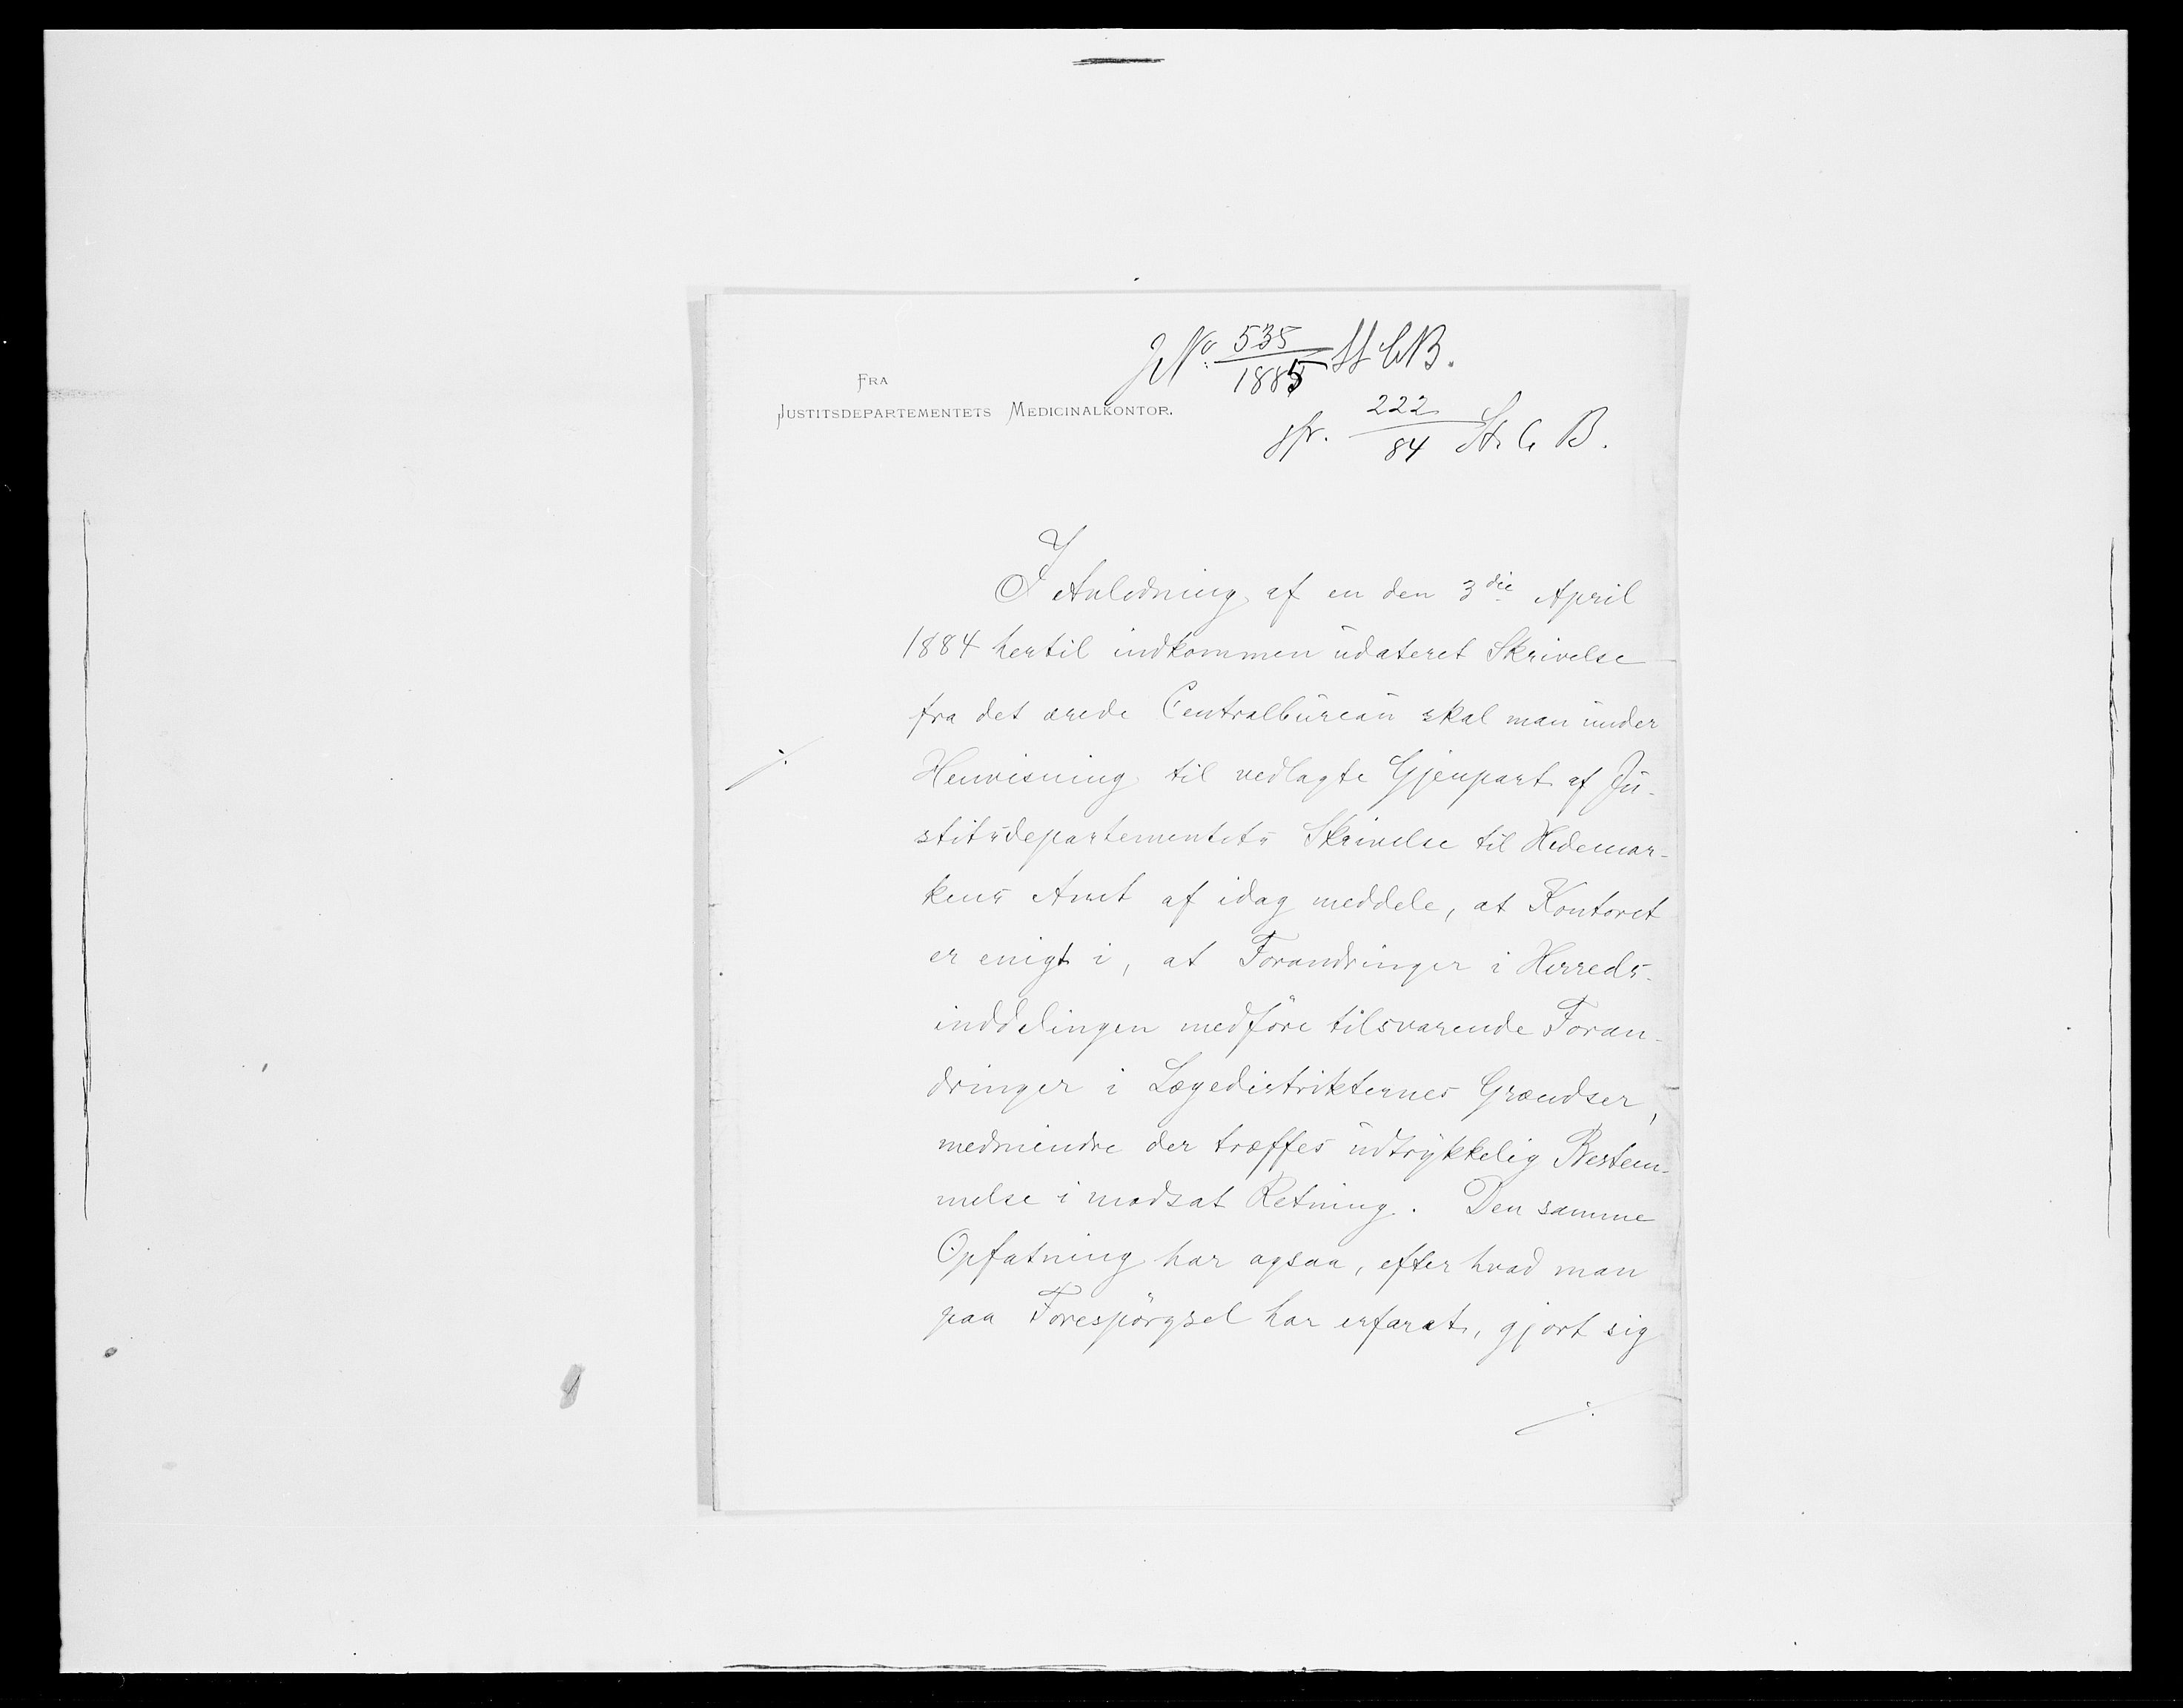 JNo. 535/1885 St. C. B.
FRA
JUSTITSDEPARTEMENTETS MEDICINALKONTOR.
jfr. 222/84 St. C. B.
I Anledning af en den 3die April
1884 hertil indkommen udateret Skrivelse
fra det ærede Centralbureau skal man under
Henvisning til vedlagte Gjenpart af Ju-
stitsdepartementets Skrivelse til Hedemar-
kens Amt af idag meddele, at Kontoret
er enigt i, at Forandringer i Herreds-
inddelingen medföre tilsvarende Foran-
dringer i Lægedistrikternes Grændser,
medmindre der træffes udtrykkelig Bestem-
melse i modsat Retning. Den samme
Opfatning har ogsaa, efter hvad man
paa Forespörgsel har erfaret, gjort sig